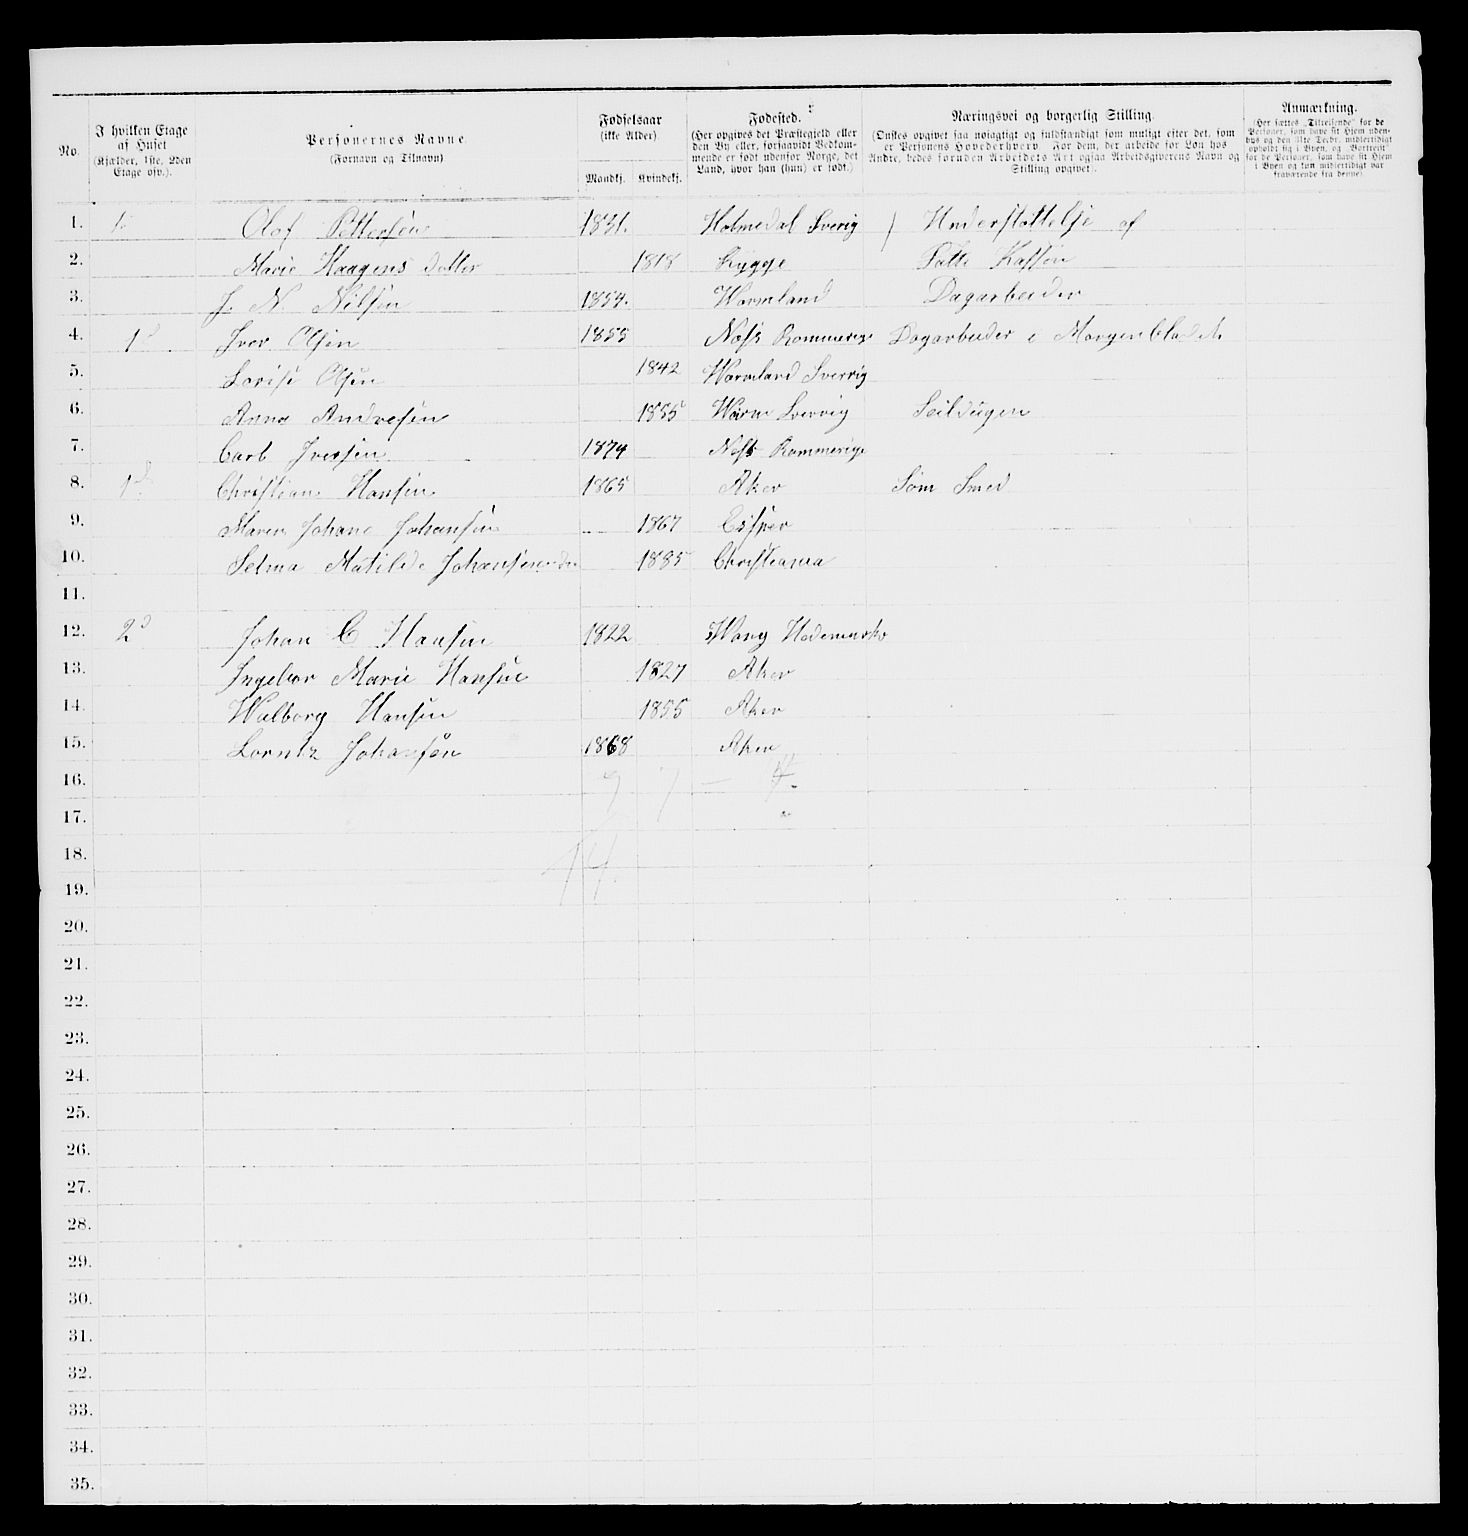 No.
I hvilken Etage af Huset
(Kjælder, 1ste, 2den Etage osv.).
Personernes Navne
(Fornavn og Tilnavn)
Fødselsaar
(ikke Alder)
Mandkj. Kvindekj.
Fødested.
(Her opgives det Præstegjeld eller den By eller, forsaavidt Vedkommende er født udenfor Norge, det Land, hvor han (hun) er født.)
Næringsvei og borgerlig Stilling.
(Ønskes opgivet saa nøiagtigt og fuldstændigt som muligt efter det, som er Personens Hovederhverv. For dem, der arbeide for Løn hos Andre, bedes foruden Arbeidets Art ogsaa Arbeidsgiverens Navn og Stilling opgivet.)
Anmærkning.
(Her sættes „Tilreisende" for de Personer, som have sit Hjem udenbys og den 31te Decbr. midlertidigt opholdt sig i Byen, og „Bortreist" for de Personer, som have sit Hjem i Byen og kun midlertidigt var fraværende fra denne).
1. 1. Olaf Pettersøn 1831. Holmedal Sverig } Understøttelse af
2. Marie Haagens datter 1818 Rygge Fatte Kassen
3. J. N. Nilsen 1854. Warmland Dagarbeider
4. 1d Iver Olsen 1855 Næss Rommerige Dagarbeider i Morgenbladet
5. Lovise Olsen 1842 Warmland Sverrig
6. Anna Andresen 1855 Warm Sverrig Seildugen
7. Carl Iversen 1874 Næss Rommerige
8. 1d Christian Hansen 1865 Aker Som Smed
9. Maren Johane Johansen 1867
10. Selma Matilde Johansen 1885 Christiania
11.
12. 2d Johan C Hansen 1822 Wang Hedemarke
13. Ingebor Marie Hansen 1827 Aker
14. Walborg Hansen 1855 Aker
15. Lorntz Johansen 1868 Aker
16. 7 7 —
17.
18. 14.
19.
20.
21.
22.
23.
24.
25.
26.
27.
28.
29.
30.
31.
32.
33.
34.
35.